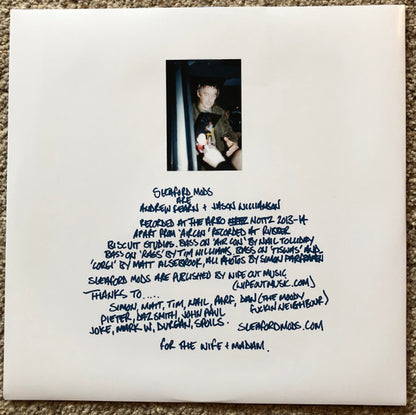 SLEAFORD MODS
ARE
ANDREW FEARN + JASON WILLIAMSON
RECORDED AT THE NOTTZ 2013-14
APART FROM 'AIRCON' RECORDED AT RUBBER
BISCUIT STUDIOS. BASS ON 'AIR CON' BY NAIL TOLLIDAY
BASS ON 'RAGS' BY TIM WILLIAMS, BASS ON 'TISWAS' AND
'CORGI' BY MATT ALSEBROOK, ALL PHOTOS BY SIMON PARFREMENT
SLEAFORD MODS ARE PUBLISHED BY WIPE OUT MUSIC
(WIPEOUTMUSIC.COM)
THANKS TO.....
SIMON, MATT, TIM, NAIL, PARF, DAN (THE MOODY
FUCKIN NEIGHBOUR)
PIETER, DAZ SMITH, JOHN PAUL
JOKE, MARK W, DURGAN, SPOILS. SLEAFORDMODS.COM
FOR THE WIFE + MADAM.